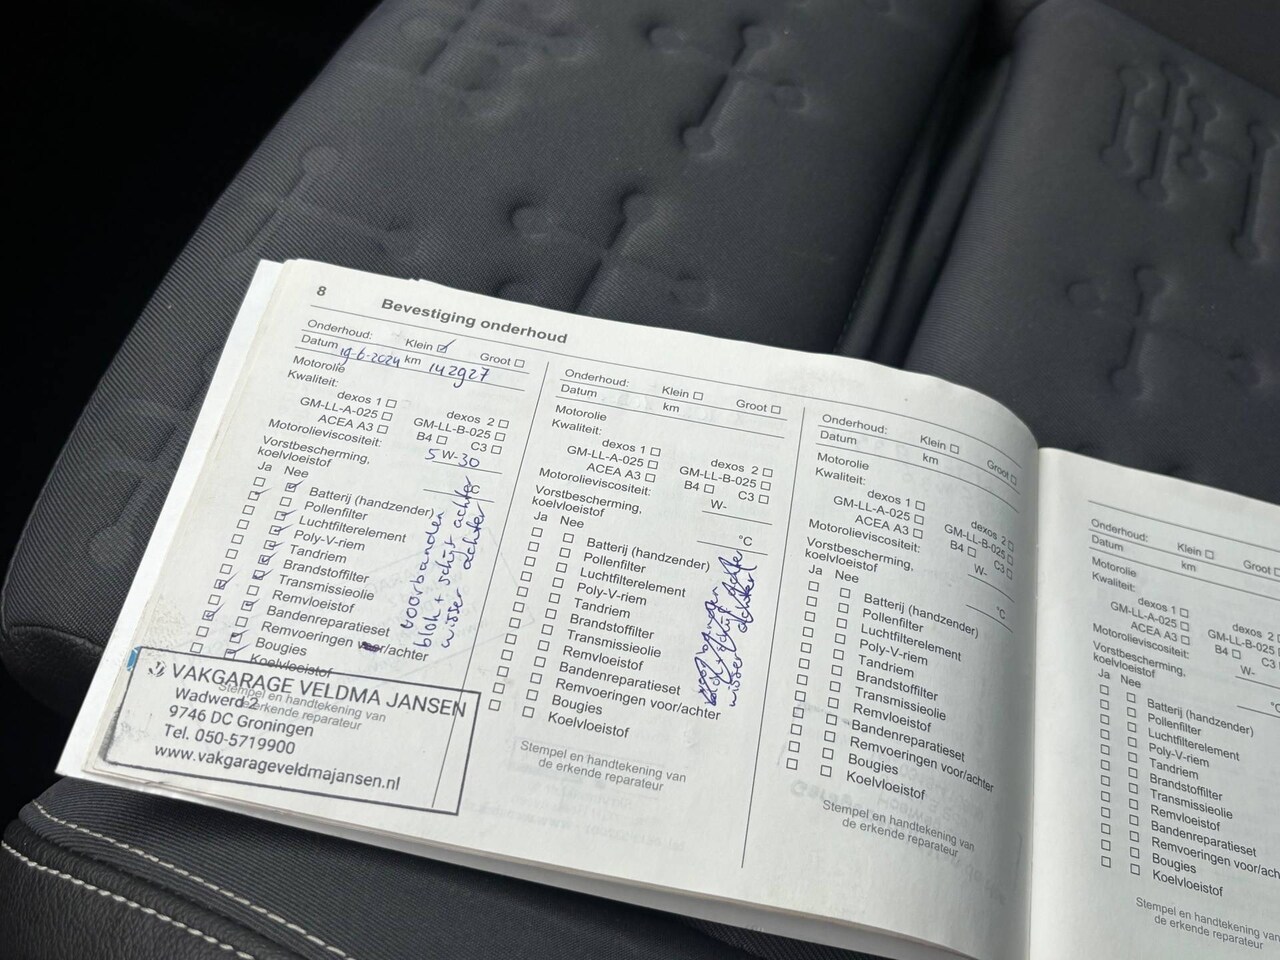 8 Bevestiging onderhoud
Onderhoud: Klein Groot
Datum 19-6-2024 km 142927
Motorolie
Kwaliteit:
dexos 1 dexos 2
GM-LL-A-025 GM-LL-B-025
ACEA A3 B4 C3
Motorolieviscositeit: 5 W-30
Vorstbescherming,
koelvloeistof °C
Ja Nee
Batterij (handzender)
Pollenfilter
Luchtfilterelement
Poly-V-riem
Tandriem
Brandstoffilter
Transmissieolie
Remvloeistof
Bandenreparatieset
Remvoeringen voor/achter
Bougies
Koelvloeistof
voorbanden
blok + schijf achter
wisser achter
Stempel en handtekening van
de erkende reparateur
VAKGARAGE VELDMA JANSEN
Wadwerd 2
9746 DC Groningen
Tel. 050-5719900
www.vakgarageveldmajansen.nl
Onderhoud: Klein Groot
Datum km
Motorolie
Kwaliteit:
dexos 1 dexos 2
GM-LL-A-025 GM-LL-B-025
ACEA A3 B4 C3
Motorolieviscositeit: W-
Vorstbescherming,
koelvloeistof °C
Ja Nee
Batterij (handzender)
Pollenfilter
Luchtfilterelement
Poly-V-riem
Tandriem
Brandstoffilter
Transmissieolie
Remvloeistof
Bandenreparatieset
Remvoeringen voor/achter
Bougies
Koelvloeistof
Stempel en handtekening van
de erkende reparateur
Onderhoud: Klein Groot
Datum km
Motorolie
Kwaliteit:
dexos 1 dexos 2
GM-LL-A-025 GM-LL-B-025
ACEA A3 B4 C3
Motorolieviscositeit: W-
Vorstbescherming,
koelvloeistof °C
Ja Nee
Batterij (handzender)
Pollenfilter
Luchtfilterelement
Poly-V-riem
Tandriem
Brandstoffilter
Transmissieolie
Remvloeistof
Bandenreparatieset
Remvoeringen voor/achter
Bougies
Koelvloeistof
Stempel en handtekening van
de erkende reparateur
Onderhoud: Klein Groot
Datum km
Motorolie
Kwaliteit:
dexos 1 dexos 2
GM-LL-A-025 GM-LL-B-025
ACEA A3 B4 C3
Motorolieviscositeit: W-
Vorstbescherming,
koelvloeistof °C
Ja Nee
Batterij (handzender)
Pollenfilter
Luchtfilterelement
Poly-V-riem
Tandriem
Brandstoffilter
Transmissieolie
Remvloeistof
Bandenreparatieset
Remvoeringen voor/ach
Bougies
Koelvloeistof
Stempel en handtekening van
de erkende reparateur